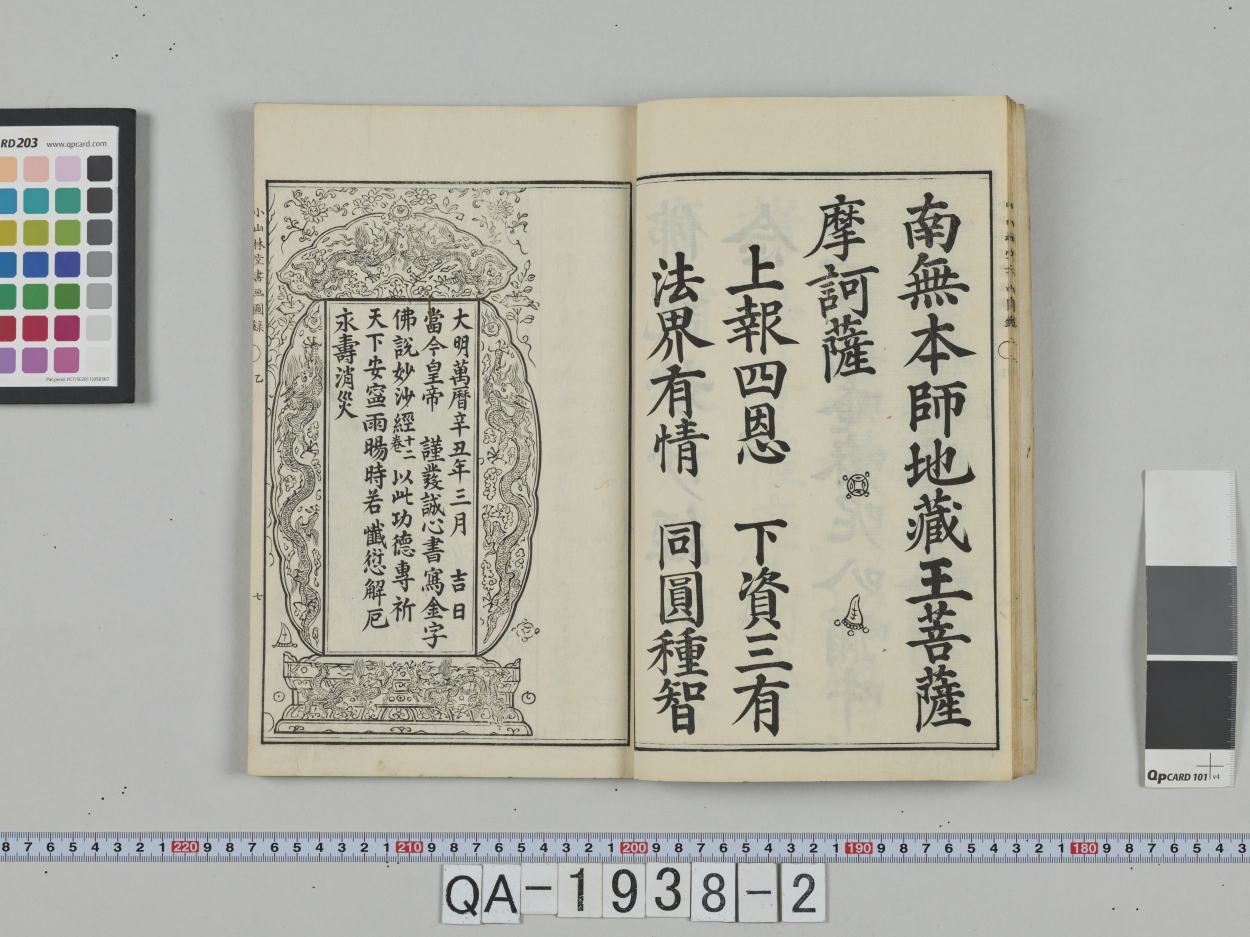 南無本師地藏王菩薩
摩訶薩
上報四恩 下資三有
法界有情 同圓種智
大明萬曆辛丑年三月 吉日
當今皇帝 謹發誠心書寫金字
佛說妙沙經十二卷以此功德專祈
天下安寧雨暘時若懺愆解厄
永壽消災
小山林堂書画圖錄 乙
七
RD203 www.qpcard.com
QPCARD 101 v4
8 7 6 5 4 3 2 1 220 9 8 7 6 5 4 3 2 1 210 9 8 7 6 5 4 3 2 1 200 9 8 7 6 5 4 3 2 1 190 9 8 7 6 5 4 3 2 1 180 9 8 7 6 5 4 3
QA-1938-2